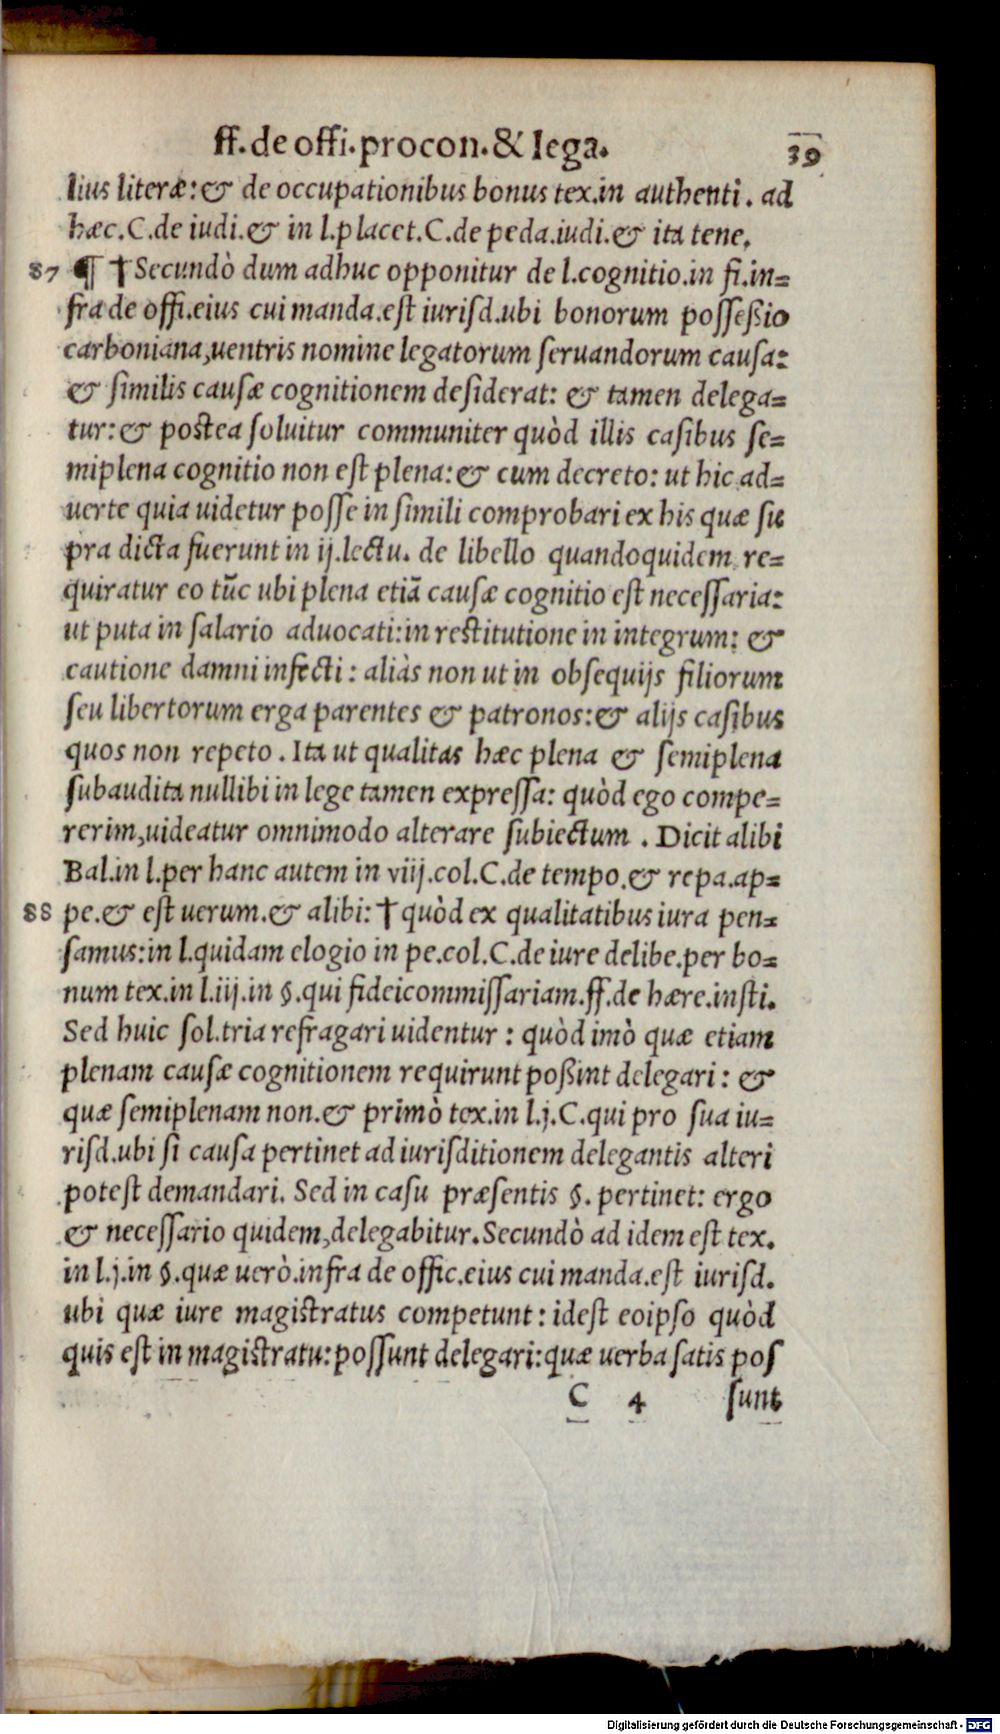 ff. de offi. procon. & lega.
39
lius literæ: & de occupationibus bonus tex. in authenti. ad
hæc. C. de iudi. & in l. placet. C. de peda. iudi. & ita tene.
87 ¶ † Secundò dum adhuc opponitur de l. cognitio. in fi. in=
fra de offi. eius cui manda. est iurisd. ubi bonorum possessio
carboniana, uentris nomine legatorum seruandorum causa:
& similis causæ cognitionem desiderat: & tamen delega=
tur: & postea soluitur communiter quòd illis casibus se=
miplena cognitio non est plena: & cum decreto: ut hic ad=
uerte quia uidetur posse in simili comprobari ex his quæ su
pra dicta fuerunt in ij. lectu. de libello quandoquidem re=
quiratur eo tūc ubi plena etiā causæ cognitio est necessaria:
ut puta in salario aduocati: in restitutione in integrum: &
cautione damni infecti: aliàs non ut in obsequijs filiorum
seu libertorum erga parentes & patronos: & alijs casibus
quos non repeto. Ita ut qualitas hæc plena & semiplena
subaudita nullibi in lege tamen expressa: quòd ego compe=
rerim, uideatur omnimodo alterare subiectum. Dicit alibi
Bal. in l. per hanc autem in viij. col. C. de tempo. & repa. ap=
88 pe. & est uerum. & alibi: † quòd ex qualitatibus iura pen=
samus: in l. quidam elogio in pe. col. C. de iure delibe. per bo=
num tex. in l. iij. in §. qui fideicommissariam. ff. de hære. insti.
Sed huic sol. tria refragari uidentur: quòd imò quæ etiam
plenam causæ cognitionem requirunt possint delegari: &
quæ semiplenam non. & primò tex. in l. j. C. qui pro sua iu=
risd. ubi si causa pertinet ad iurisditionem delegantis alteri
potest demandari. Sed in casu præsentis §. pertinet: ergo
& necessario quidem, delegabitur. Secundò ad idem est tex.
in l. j. in §. quæ uerò. infra de offic. eius cui manda. est iurisd.
ubi quæ iure magistratus competunt: idest eoipso quòd
quis est in magistratu: possunt delegari: quæ uerba satis pos
C 4 sunt
Digitalisierung gefördert durch die Deutsche Forschungsgemeinschaft - DFG